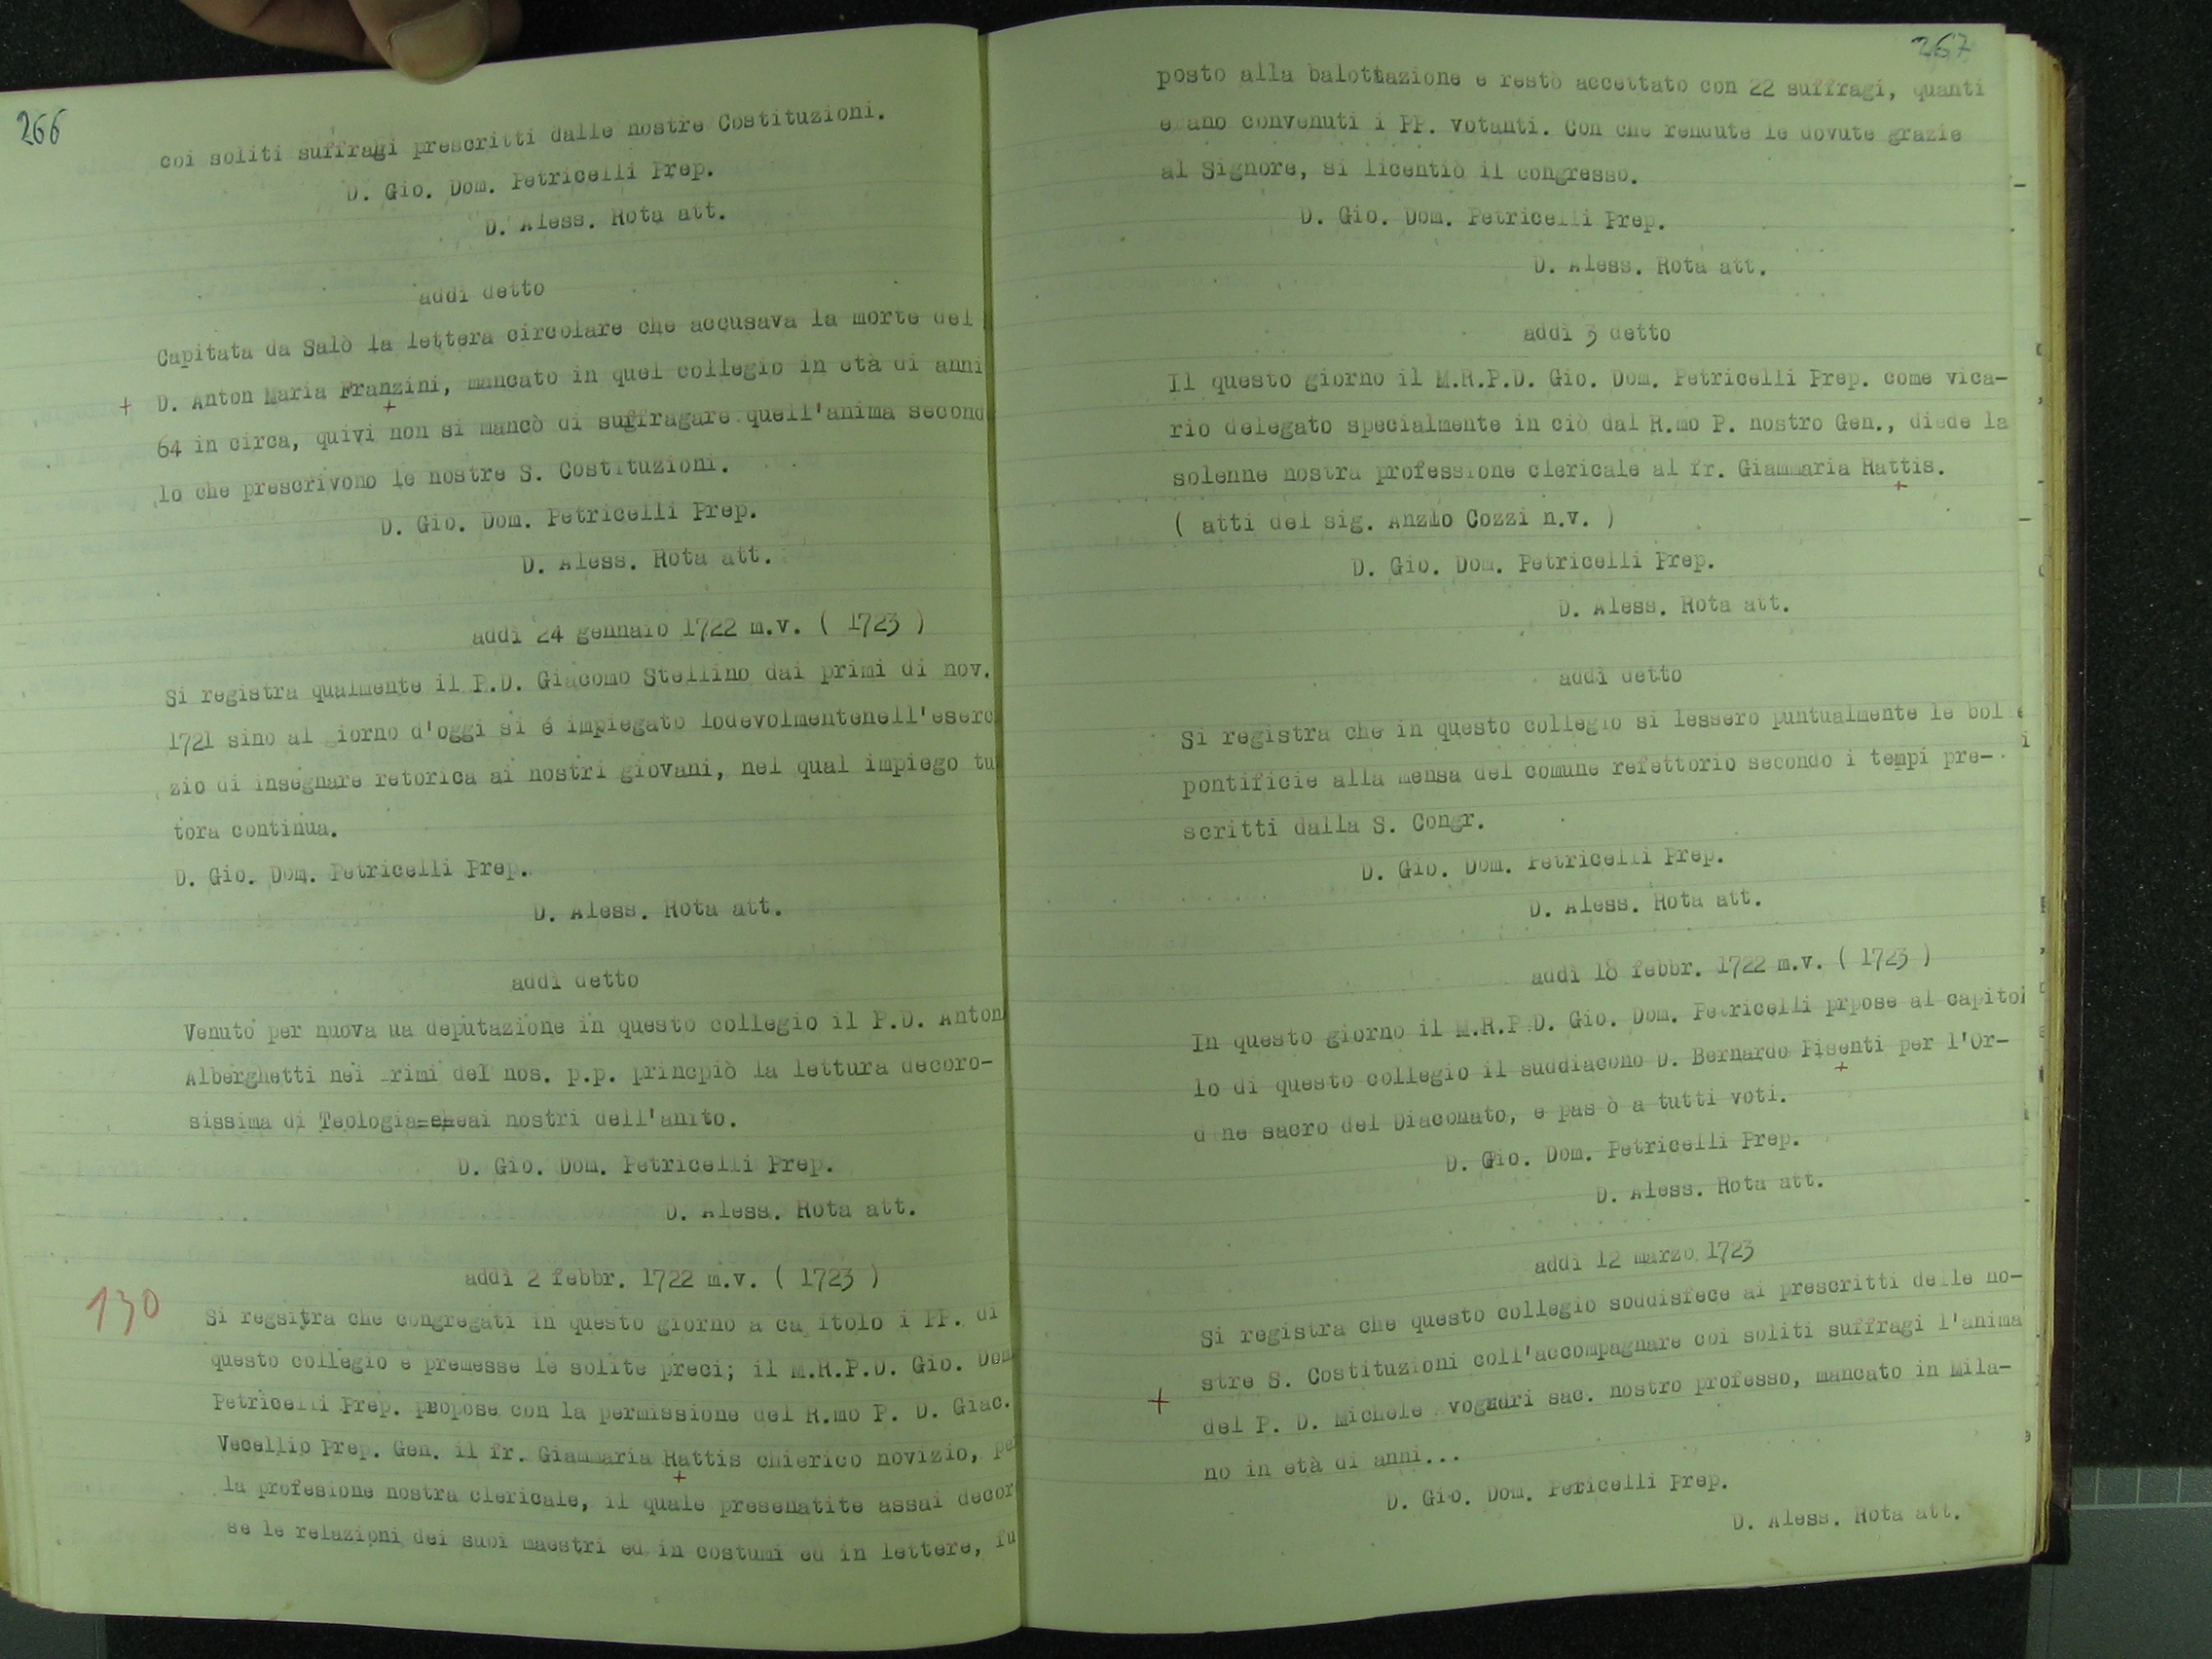 266
coi soliti suffragi prescritti dalle nostre Costituzioni.
D. Gio. Dom. Petricelli Prep.
D. Aless. Rota att.
addì detto
Capitata da Salò la lettera circolare che accusava la morte del
+ D. Anton Maria Franzini, mancato in quel collegio in età di anni
+
64 in circa, quivi non si mancò di suffragare quell'anima second
lo che prescrivono le nostre S. Costituzioni.
D. Gio. Dom. Petricelli Prep.
D. Aless. Rota att.
addì 24 gennaio 1722 m.v. ( 1723 )
Si registra qualmente il P.D. Giacomo Stellino dai primi di nov.
1721 sino al giorno d'oggi si é impiegato lodevolmentenell'eserc
zio di insegnare retorica ai nostri giovani, nel qual impiego tu
tora continua.
D. Gio. Dom. Petricelli Prep.
D. Aless. Rota att.
addì detto
Venuto per nuova ua deputazione in questo collegio il P.D. Anton
Alberghetti nei primi del nos. p.p. princpiò la lettura decoro-
sissima di Teologia ai nostri dell'anito.
D. Gio. Dom. Petricelli Prep.
D. Aless. Rota att.
addì 2 febbr. 1722 m.v. ( 1723 )
130
Si regsitra che congregati in questo giorno a capitolo i PP. di
questo collegio e premesse le solite preci; il M.R.P.D. Gio. Dom
Petricelli Prep. propose con la permissione del R.mo P. D. Giac.
Vecellio Prep. Gen. il fr. Giammaria Rattis chierico novizio, pe
+
la profesione nostra clericale, il quale presenatite assai decor
se le relazioni dei suoi maestri ed in costumi ed in lettere, fu
267
posto alla balottazione e restò accettato con 22 suffragi, quanti
erano convenuti i PP. votanti. Con che rendute le dovute grazie
al Signore, si licentiò il congresso.
D. Gio. Dom. Petricelli Prep.
D. Aless. Rota att.
addì 3 detto
Il questo giorno il M.R.P.D. Gio. Dom. Petricelli Prep. come vica-
rio delegato specialmente in ciò dal R.mo P. nostro Gen., diede la
solenne nostra professione clericale al fr. Giammaria Rattis.
+
( atti del sig. Anzlo Cozzi n.v. )
D. Gio. Dom. Petricelli Prep.
D. Aless. Rota att.
addì detto
Si registra che in questo collegio si lessero puntualmente le bol e
pontificie alla mensa del comune refettorio secondo i tempi pre-
scritti dalla S. Congr.
D. Gio. Dom. Petricelli Prep.
D. Aless. Rota att.
addì 18 febbr. 1722 m.v. ( 1723 )
In questo giorno il M.R.P.D. Gio. Dom. Petricelli prpose al capito
lo di questo collegio il suddiacono D. Bernardo Pisenti per l'Or-
+
dine sacro del Diaconato, e pas ò a tutti voti.
D. Gio. Dom. Petricelli Prep.
D. Aless. Rota att.
addì 12 marzo 1723
Si registra che questo collegio soddisfece ai prescritti delle no-
stre S. Costituzioni coll'accompagnare coi soliti suffragi l'anima
+ del P. D. Michele sac. nostro professo, mancato in Mila-
no in età di anni...
D. Gio. Dom. Petricelli Prep.
D. Aless. Rota att.